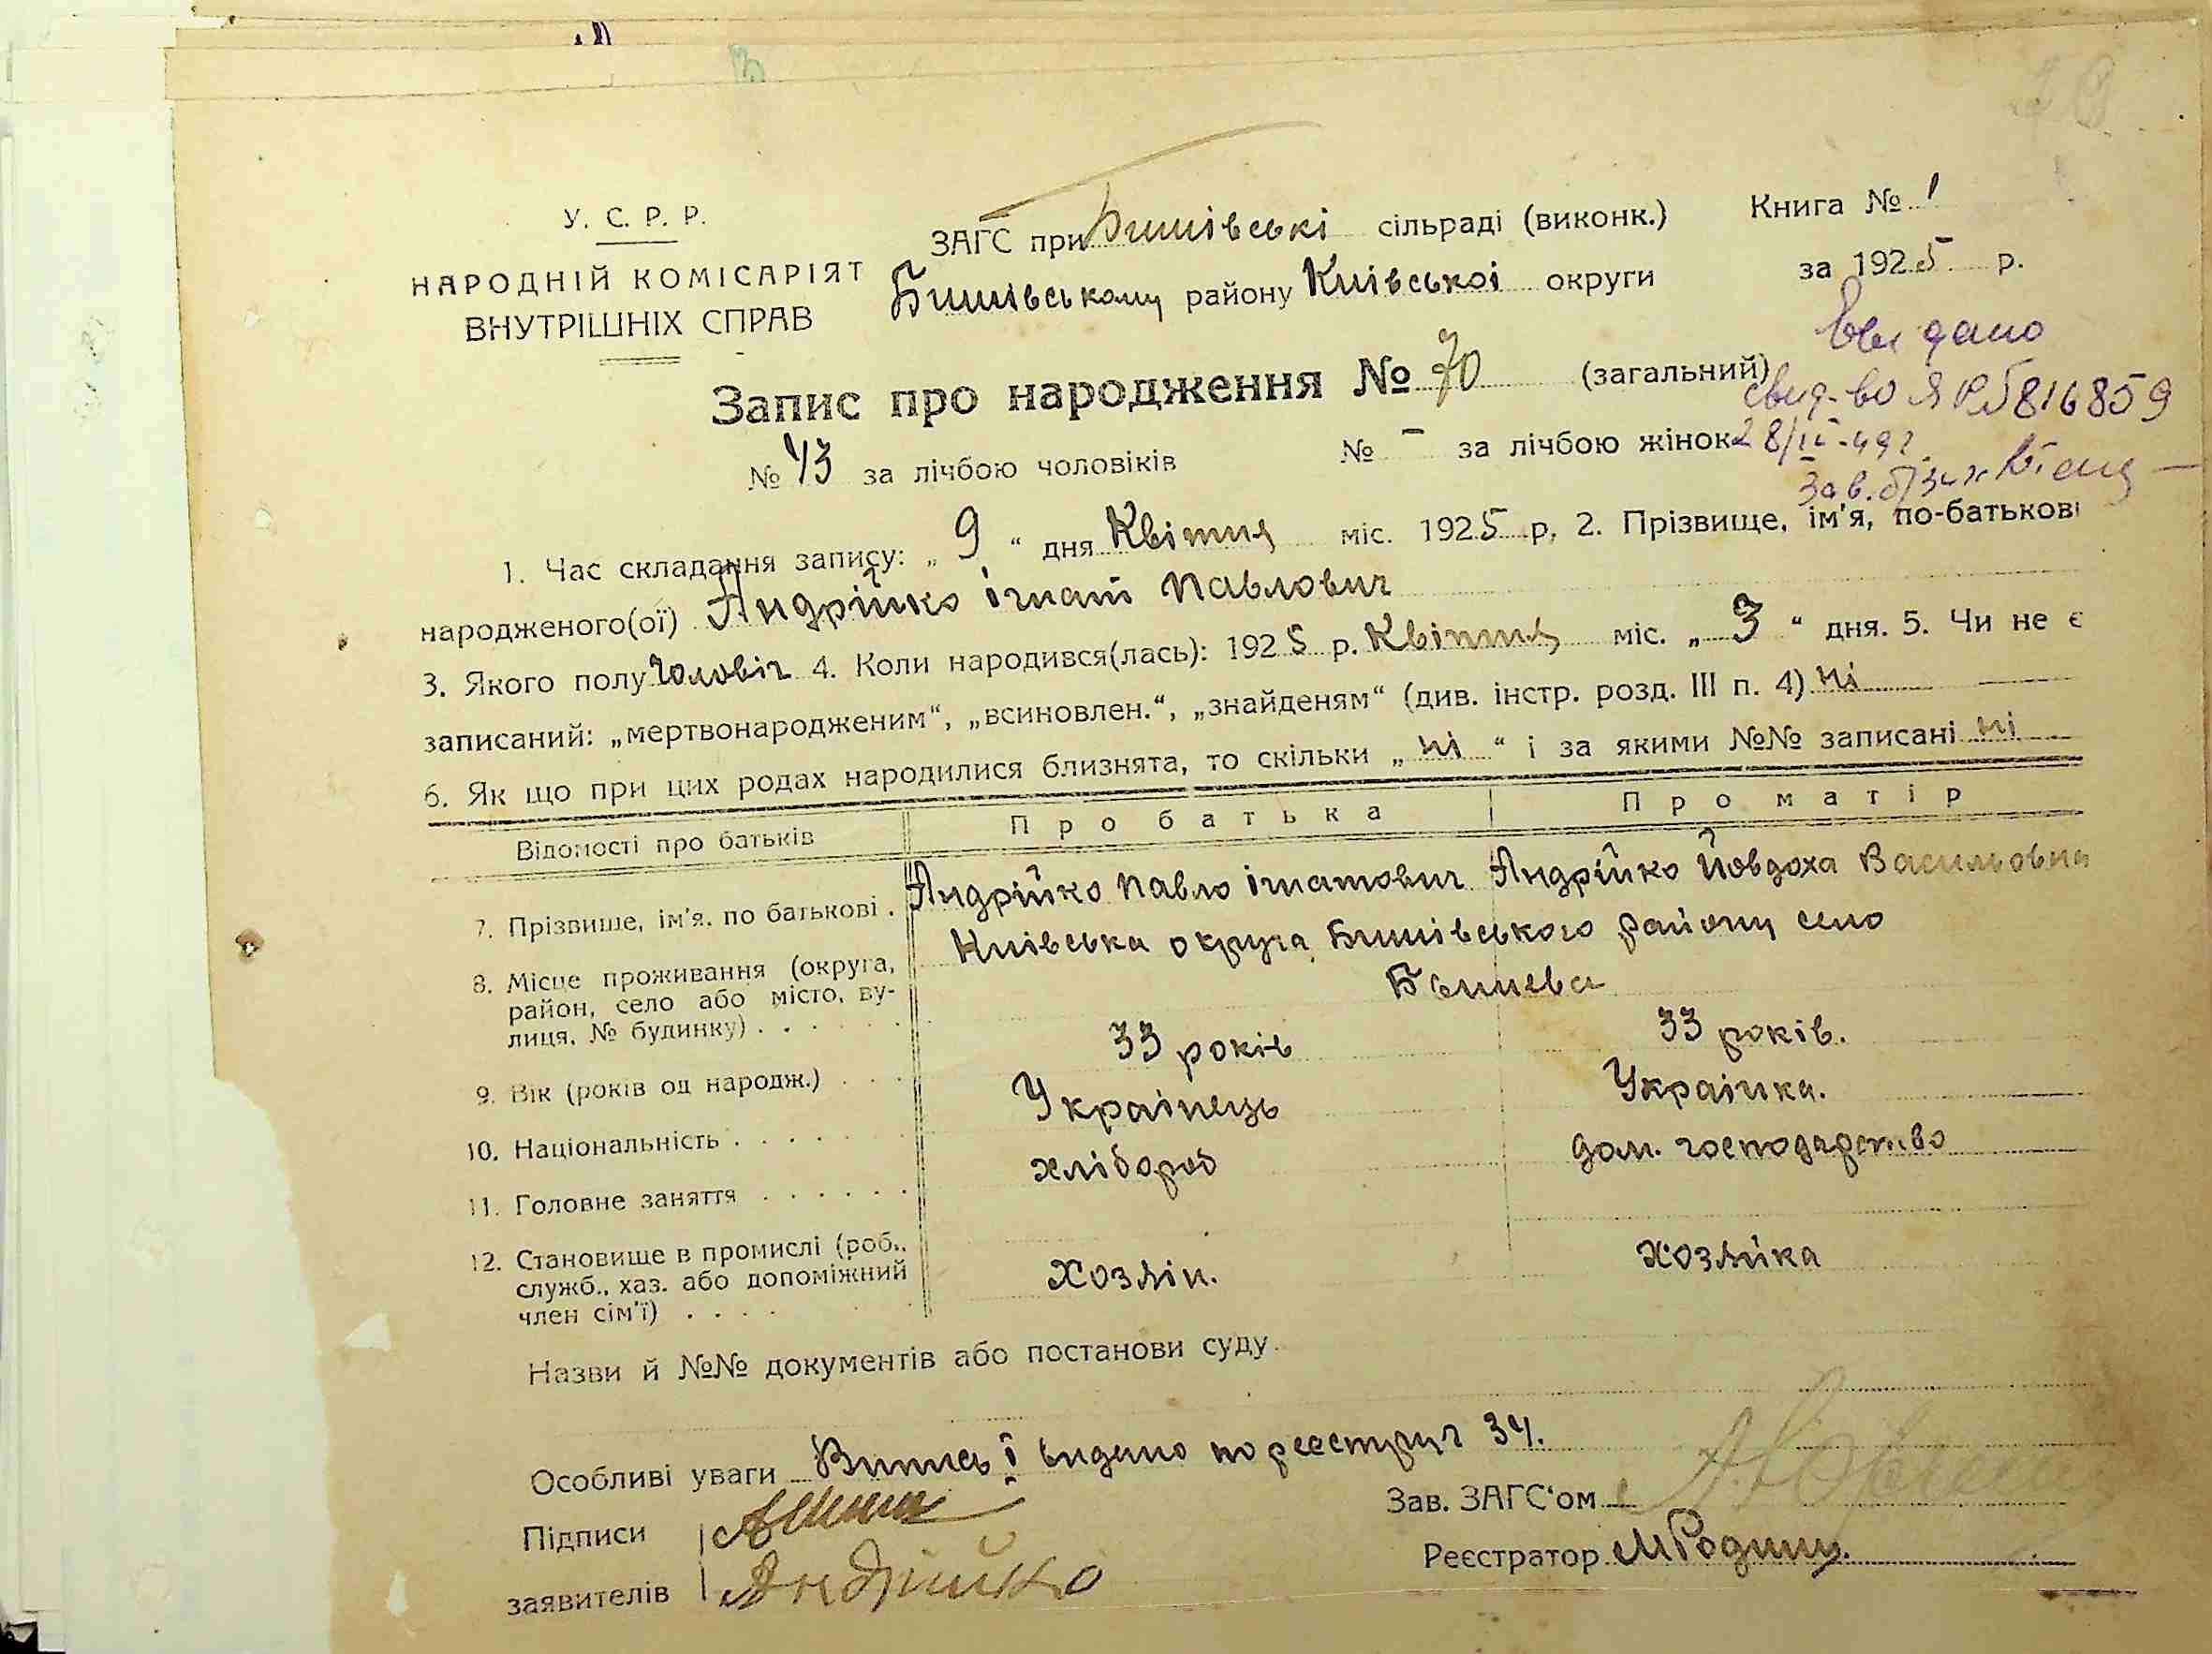 У. С. Р. Р.
НАРОДНІЙ КОМІСАРІЯТ
ВНУТРІШНІХ СПРАВ
ЗАГС при Бишівські сільраді (виконк.)
Бишівському району Київської округи
Книга № 1
за 1925 р.
Запис про народження № 70 (загальний)
Видано
свид-во 816859
28/ІІ-49г.
Зав. б/зих
№ 43 за лічбою чоловіків № – за лічбою жінок
1. Час складання запису: „ 9 “ дня Квітня міс. 1925 р, 2. Прізвище, ім'я, по-батькові
народженого(ої) Андрійко ігнат Павлович
3. Якого полу Чоловіч 4. Коли народився(лась): 1925 р. Квітня міс. „ 3 “ дня. 5. Чи не є
записаний: „мертвонародженим“, „всиновлен.“, „знайденям“ (див. інстр. розд. III п. 4) ні
6. Як що при цих родах народилися близнята, то скільки „ ні “ і за якими №№ записані ні
Відомості про батьків Про батька Про матір
7. Прізвище, ім'я, по батькові . Андрійко Павло ігнатович Андрійко Йовдоха Васильовна
8. Місце проживання (округа, район, село або місто, ву-лиця, № будинку) . . . . . Київська округа Бишівського району село
Бышева
9. Вік (років од народж.) . . . 33 років 33 років.
10. Національність . . . . . . . Українець Украінка.
11. Головне заняття . . . . . . хлібороб дом. господарство
12. Становище в промислі (роб., служб., хаз. або допоміжний член сім'ї) . . . . Хозяін. Хозяйка
Назви й №№ документів або постанови суду
Особливі уваги Випись ї видано по реєстру 34.
Підписи
заявителів Андрійко
Зав. ЗАГС'ом
Реєстратор